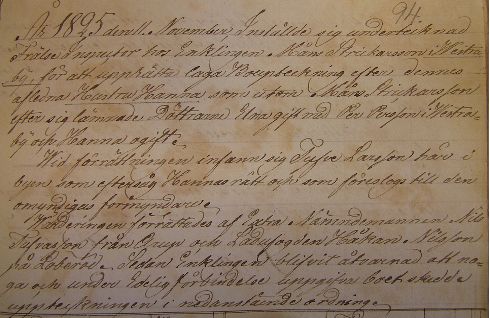 94.
År 1825 den 11 November, Inställde sig undertecknad
Frälse Inspector hos Enklingen Måns Strickarsson i Westra
by, för att upprätta laga Boupteckning efter dennes
aflidna Hustru Hanna som utom Måns Strickarsson
efter sig lämnade Döttrarne Elna gift med Per Persson i Westra-
by och Hanna ogift.
Wid förrättningen infann sig Tufve Larsson här i
byn som eftersåg Hannas rätt och som föreslogs till den
omyndigas förmyndare.
Wärderingen förrättades af Extra Nämndemannen Nils
Tufvasson från och Ladufogden Håkan Nilsson
på Löberöd. Sedan Enklingen blifvit åtvarnad att no-
ga och under Edelig förbindelse uppgifva boet skedde
uppteckningen i nedanstående ordning.